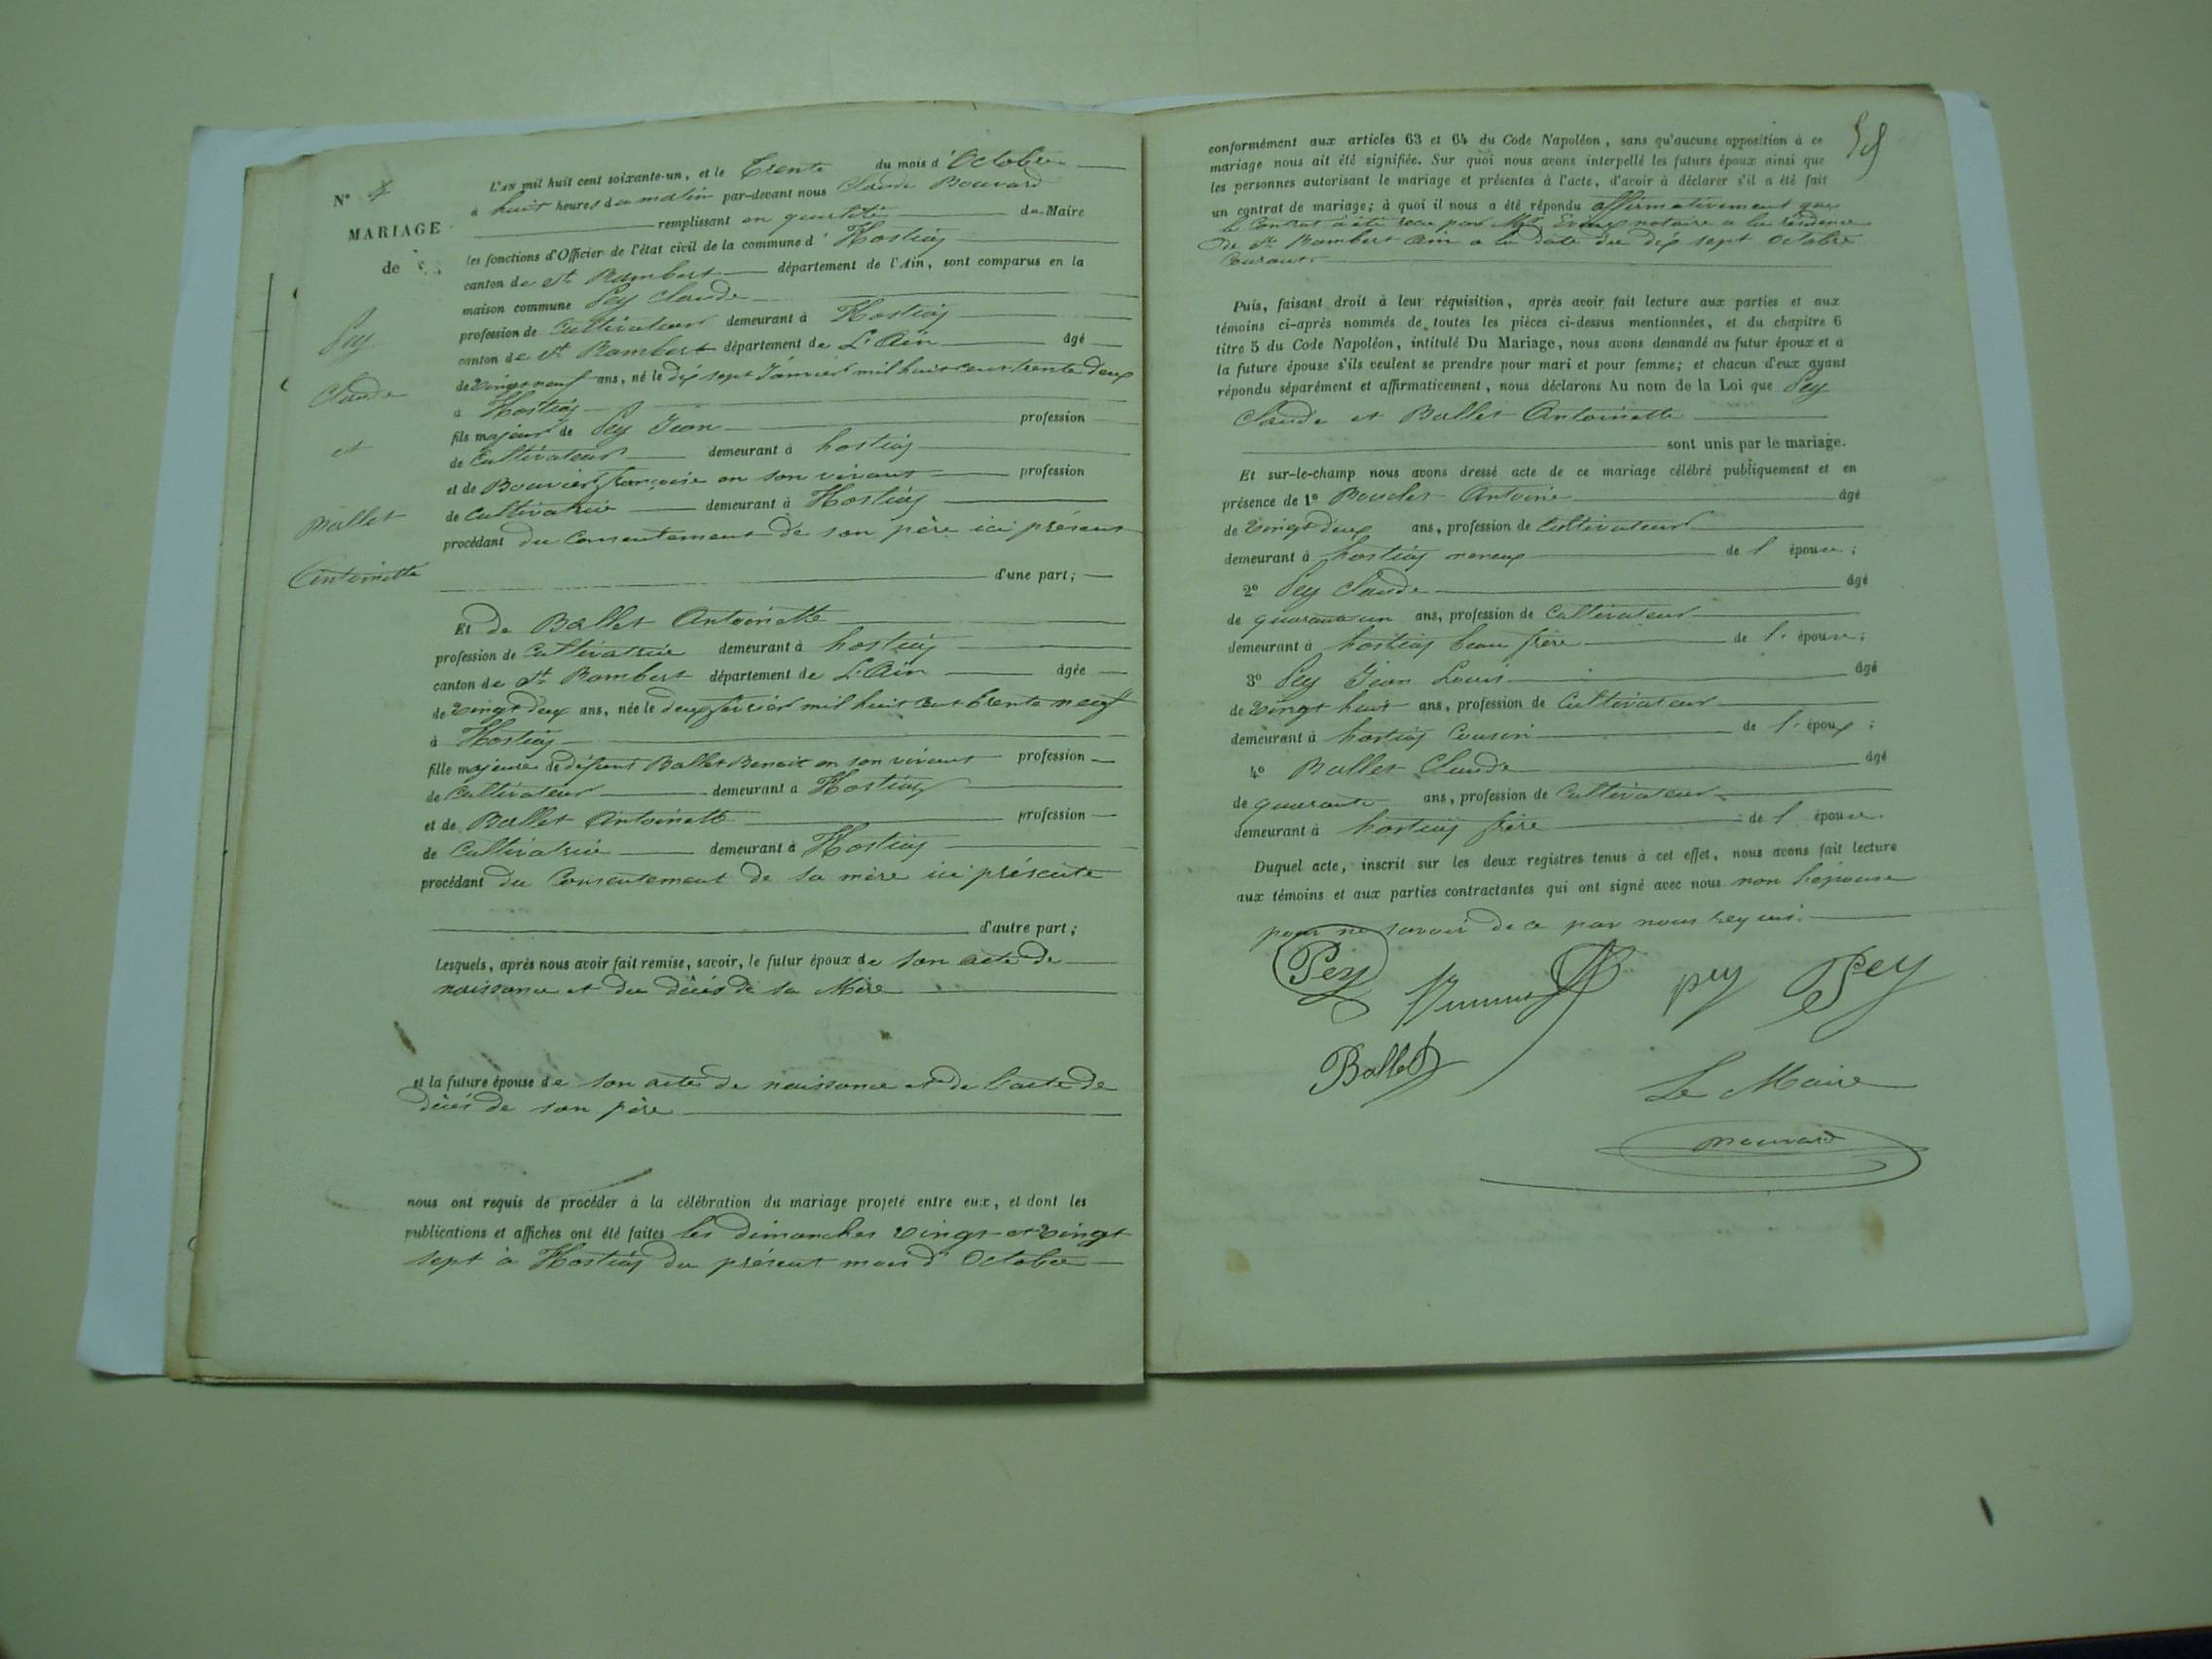 N° 4
MARIAGE
de
Pey
Claude
et
Ballet
Antoinette
L'AN mil huit cent soixante-un, et le Trente du mois d'Octobre
à huit heures du matin par-devant nous Claude Bouvard
remplissant en qualité de Maire
les fonctions d'Officier de l'état civil de la commune d'Hostiaz
canton de St Rambert département de l'Ain, sont comparus en la
maison commune Pey Claude
profession de Cultivateur demeurant à Hostiaz
canton de St Rambert département de L'Ain âgé
de Vingt neuf ans, né le dix sept Janvier mil huit cent trente deux
à Hostiaz
fils majeur de Pey Jean profession
de Cultivateur demeurant à hostiaz
et de Bouvier françoise en son vivant profession
de Cultivatrice demeurant à Hostiaz
procédant du Consentement de son père ici présent
d'une part;
Et de Ballet Antoinette
profession de Cultivatrice demeurant à hostiaz
canton de St Rambert département de L'Ain âgée
de Vingt deux ans, née le deux fevrier mil huit cent trente neuf
à Hostiaz
fille majeure de défunt Ballet Benoit en son vivant profession
de Cultivateur demeurant à Hostiaz
et de Ballet Antoinette profession
de Cultivatrice demeurant à Hostiaz
procédant du Consentement de sa mère ici présente
d'autre part;
Lesquels, après nous avoir fait remise, savoir, le futur époux de son acte de
naissance et du décès de sa Mère
et la future épouse de son acte de naissance et de l'acte de
décès de son père
nous ont requis de procéder à la célébration du mariage projeté entre eux, et dont les
publications et affiches ont été faites les dimanches vingt et vingt
sept à Hostiaz du présent mois d'Octobre
59
conformément aux articles 63 et 64 du Code Napoléon, sans qu'aucune opposition à ce
mariage nous ait été signifiée. Sur quoi nous avons interpellé les futurs époux ainsi que
les personnes autorisant le mariage et présentes à l'acte, d'avoir à déclarer s'il a été fait
un contrat de mariage; à quoi il nous a été répondu affirmativement que
le Contrat a été recu par notaire a la résidence
de St Rambert Ain a la date du dix sept Octobre
Courant
Puis, faisant droit à leur réquisition, après avoir fait lecture aux parties et aux
témoins ci-après nommés de toutes les pièces ci-dessus mentionnées, et du chapitre 6
titre 5 du Code Napoléon, intitulé Du Mariage, nous avons demandé au futur époux et à
la future épouse s'ils veulent se prendre pour mari et pour femme; et chacun d'eux ayant
répondu séparément et affirmativement, nous déclarons Au nom de la Loi que Pey
Claude et Ballet Antoinette
sont unis par le mariage.
Et sur-le-champ nous avons dressé acte de ce mariage célébré publiquement et en
présence de 1° Antoine âgé
de Vingt deux ans, profession de Cultivateur
demeurant à hostiaz neveux de l'épouse;
2° Pey Claude âgé
de quarante un ans, profession de Cultivateur
demeurant à hostiaz beau frère de l'épouse;
3° Pey Jean Louis âgé
de Vingt huit ans, profession de Cultivateur
demeurant à hostiaz Cousin de l'époux;
4° Ballet Claude âgé
de quarante ans, profession de Cultivateur
demeurant à hostiaz frère de l'épouse.
Duquel acte, inscrit sur les deux registres tenus à cet effet, nous avons fait lecture
aux témoins et aux parties contractantes qui ont signé avec nous non l'épouse
pour ne savoir de ce par nous requis.
Pey pey Pey
Ballet
Le Maire
Bouvard